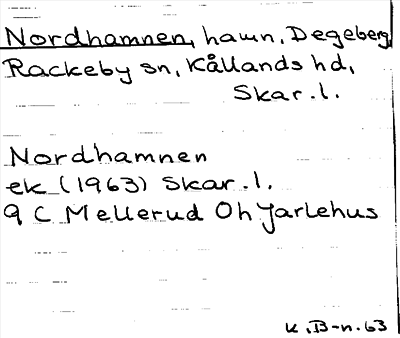 Nordhamnen, hamn, Degeberg,
Rackeby sn, Kållands hd,
Skar.l.
Nordhamnen
ek (1963) Skar.l.
9 C Mellerud Oh Jarlehus
K.B-n. 63